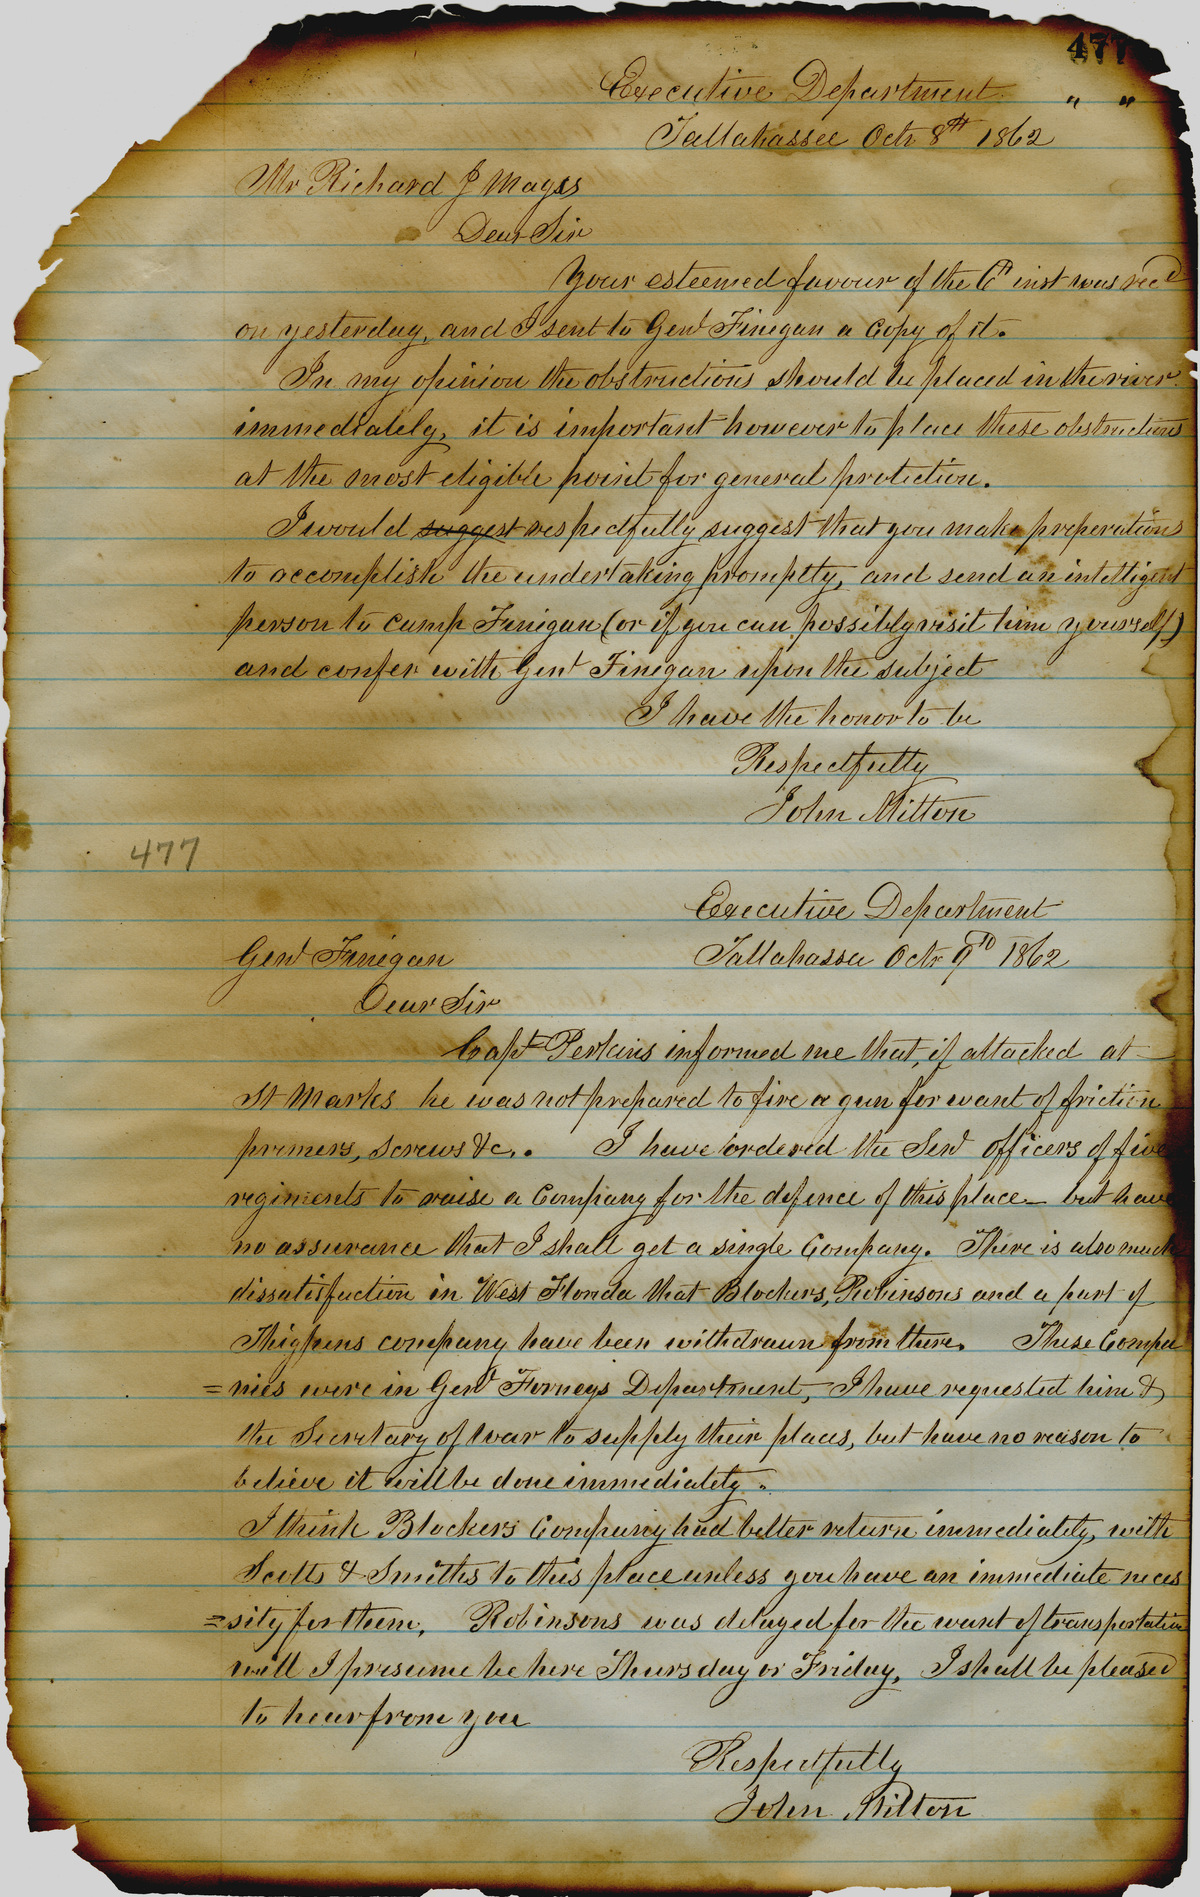 477
Executive Department " "
Tallahassee Octr 8th 1862
Mr Richard J Mays
Dear Sir
Your esteemed favour of the 6th inst was recd
on yesterday, and I sent to Genl Finegan a Copy of it.
In my opinion the obstructions should be placed in the river
immediately, it is important however to place these obstructions
at the most eligible point for general protection.
I would suggest respectfully suggest that you make preperations
to accomplish the undertaking promptly, and send an intelligent
person to Camp Finigan (or if you can possibly visit him yourself)
and confer with Genl Finegan upon the subject
I have the honor to be
Respectfully
John Milton
477
Executive Department
Genl Finigan Tallahassee Octr 9th 1862
Dear Sir
Capt Perkins informed me that, if attacked at
St Marks he was not prepared to fire a gun for want of friction
primers, screws &c. I have ordered the officers of five
regiments to raise a Company for the defence of this place — but have
no assurance that I shall get a single Company. There is also much
dissatisfaction in West Florida that Blockers, Robinsons and a part of
Thigpens company have been withdrawn from there. These Compa
=nies were in Genl Forneys Department, I have requested him &
the Secretary of War to supply their places, but have no reason to
believe it will be done immediately.
I think Blockers Company had better return immediately, with
Scotts & Smiths to this place unless you have an immediate neces
=sity for them, Robinsons was delayed for the want of transportation
will I presume be here Thursday or Friday, I shall be pleased
to hear from you
Respectfully
John Milton